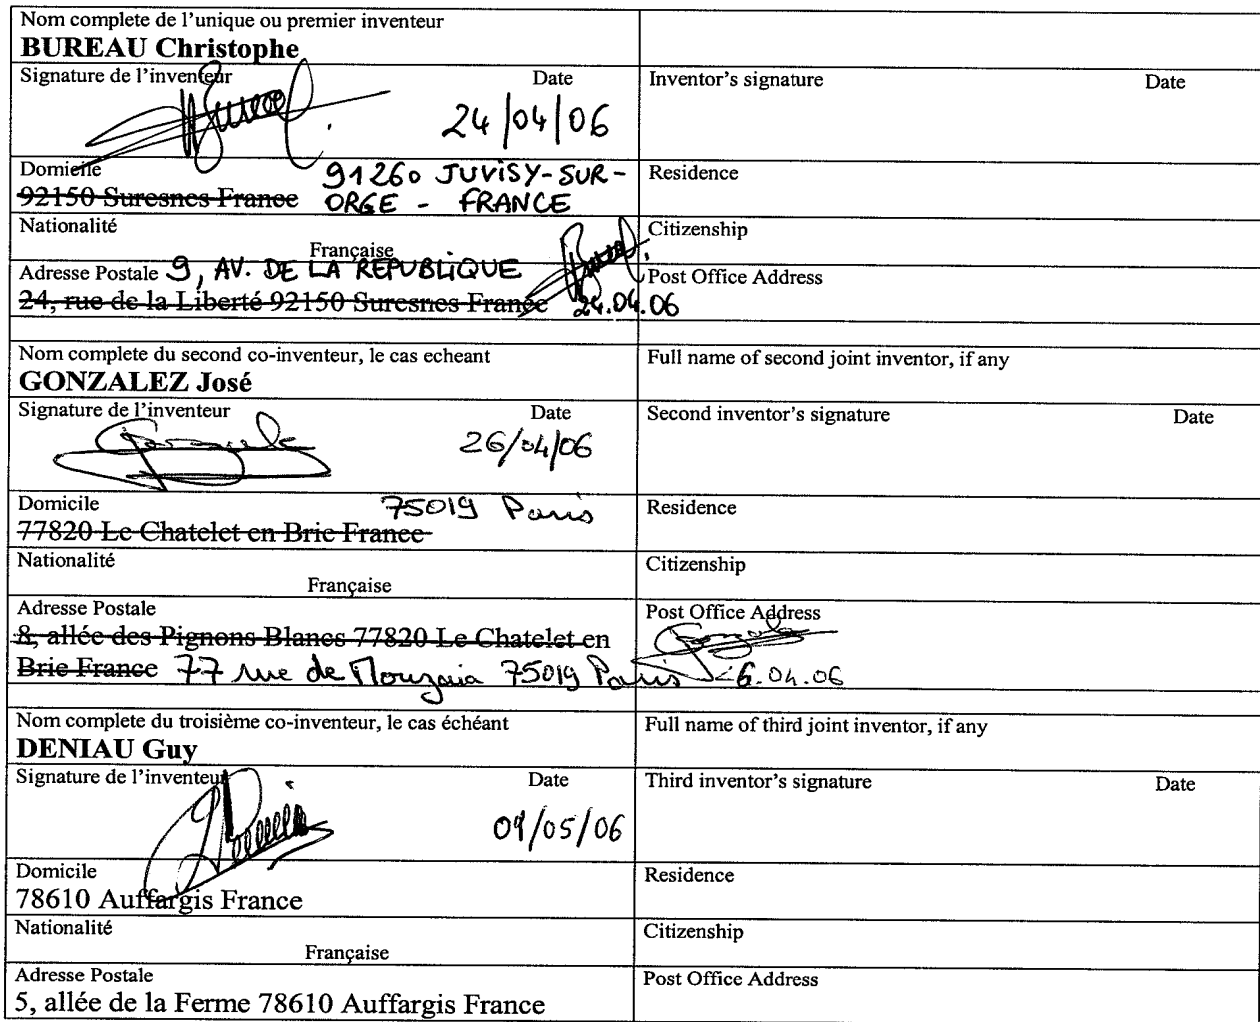 Nom complete de l'unique ou premier inventeur
BUREAU Christophe
Signature de l'inventeur Date
Inventor's signature Date
24/04/06
Domicile
91260 JUVISY-SUR-
92150 Suresnes France ORGE - FRANCE
Residence
Nationalité
Française
Citizenship
Adresse Postale 9, AV. DE LA REPUBLIQUE
24, rue de la Liberté 92150 Suresnes France 24.04.06
Post Office Address
Nom complete du second co-inventeur, le cas echeant
GONZALEZ José
Full name of second joint inventor, if any
Signature de l'inventeur Date
26/04/06
Second inventor's signature Date
Domicile 75019 Paris
77820 Le Chatelet en Brie France
Residence
Nationalité
Française
Citizenship
Adresse Postale
8, allée des Pignons Blancs 77820 Le Chatelet en
Brie France 77 rue de Mouzaia 75019 Paris 26.04.06
Post Office Address
Nom complete du troisième co-inventeur, le cas échéant
DENIAU Guy
Full name of third joint inventor, if any
Signature de l'inventeur Date
09/05/06
Third inventor's signature Date
Domicile
78610 Auffargis France
Residence
Nationalité
Française
Citizenship
Adresse Postale
5, allée de la Ferme 78610 Auffargis France
Post Office Address